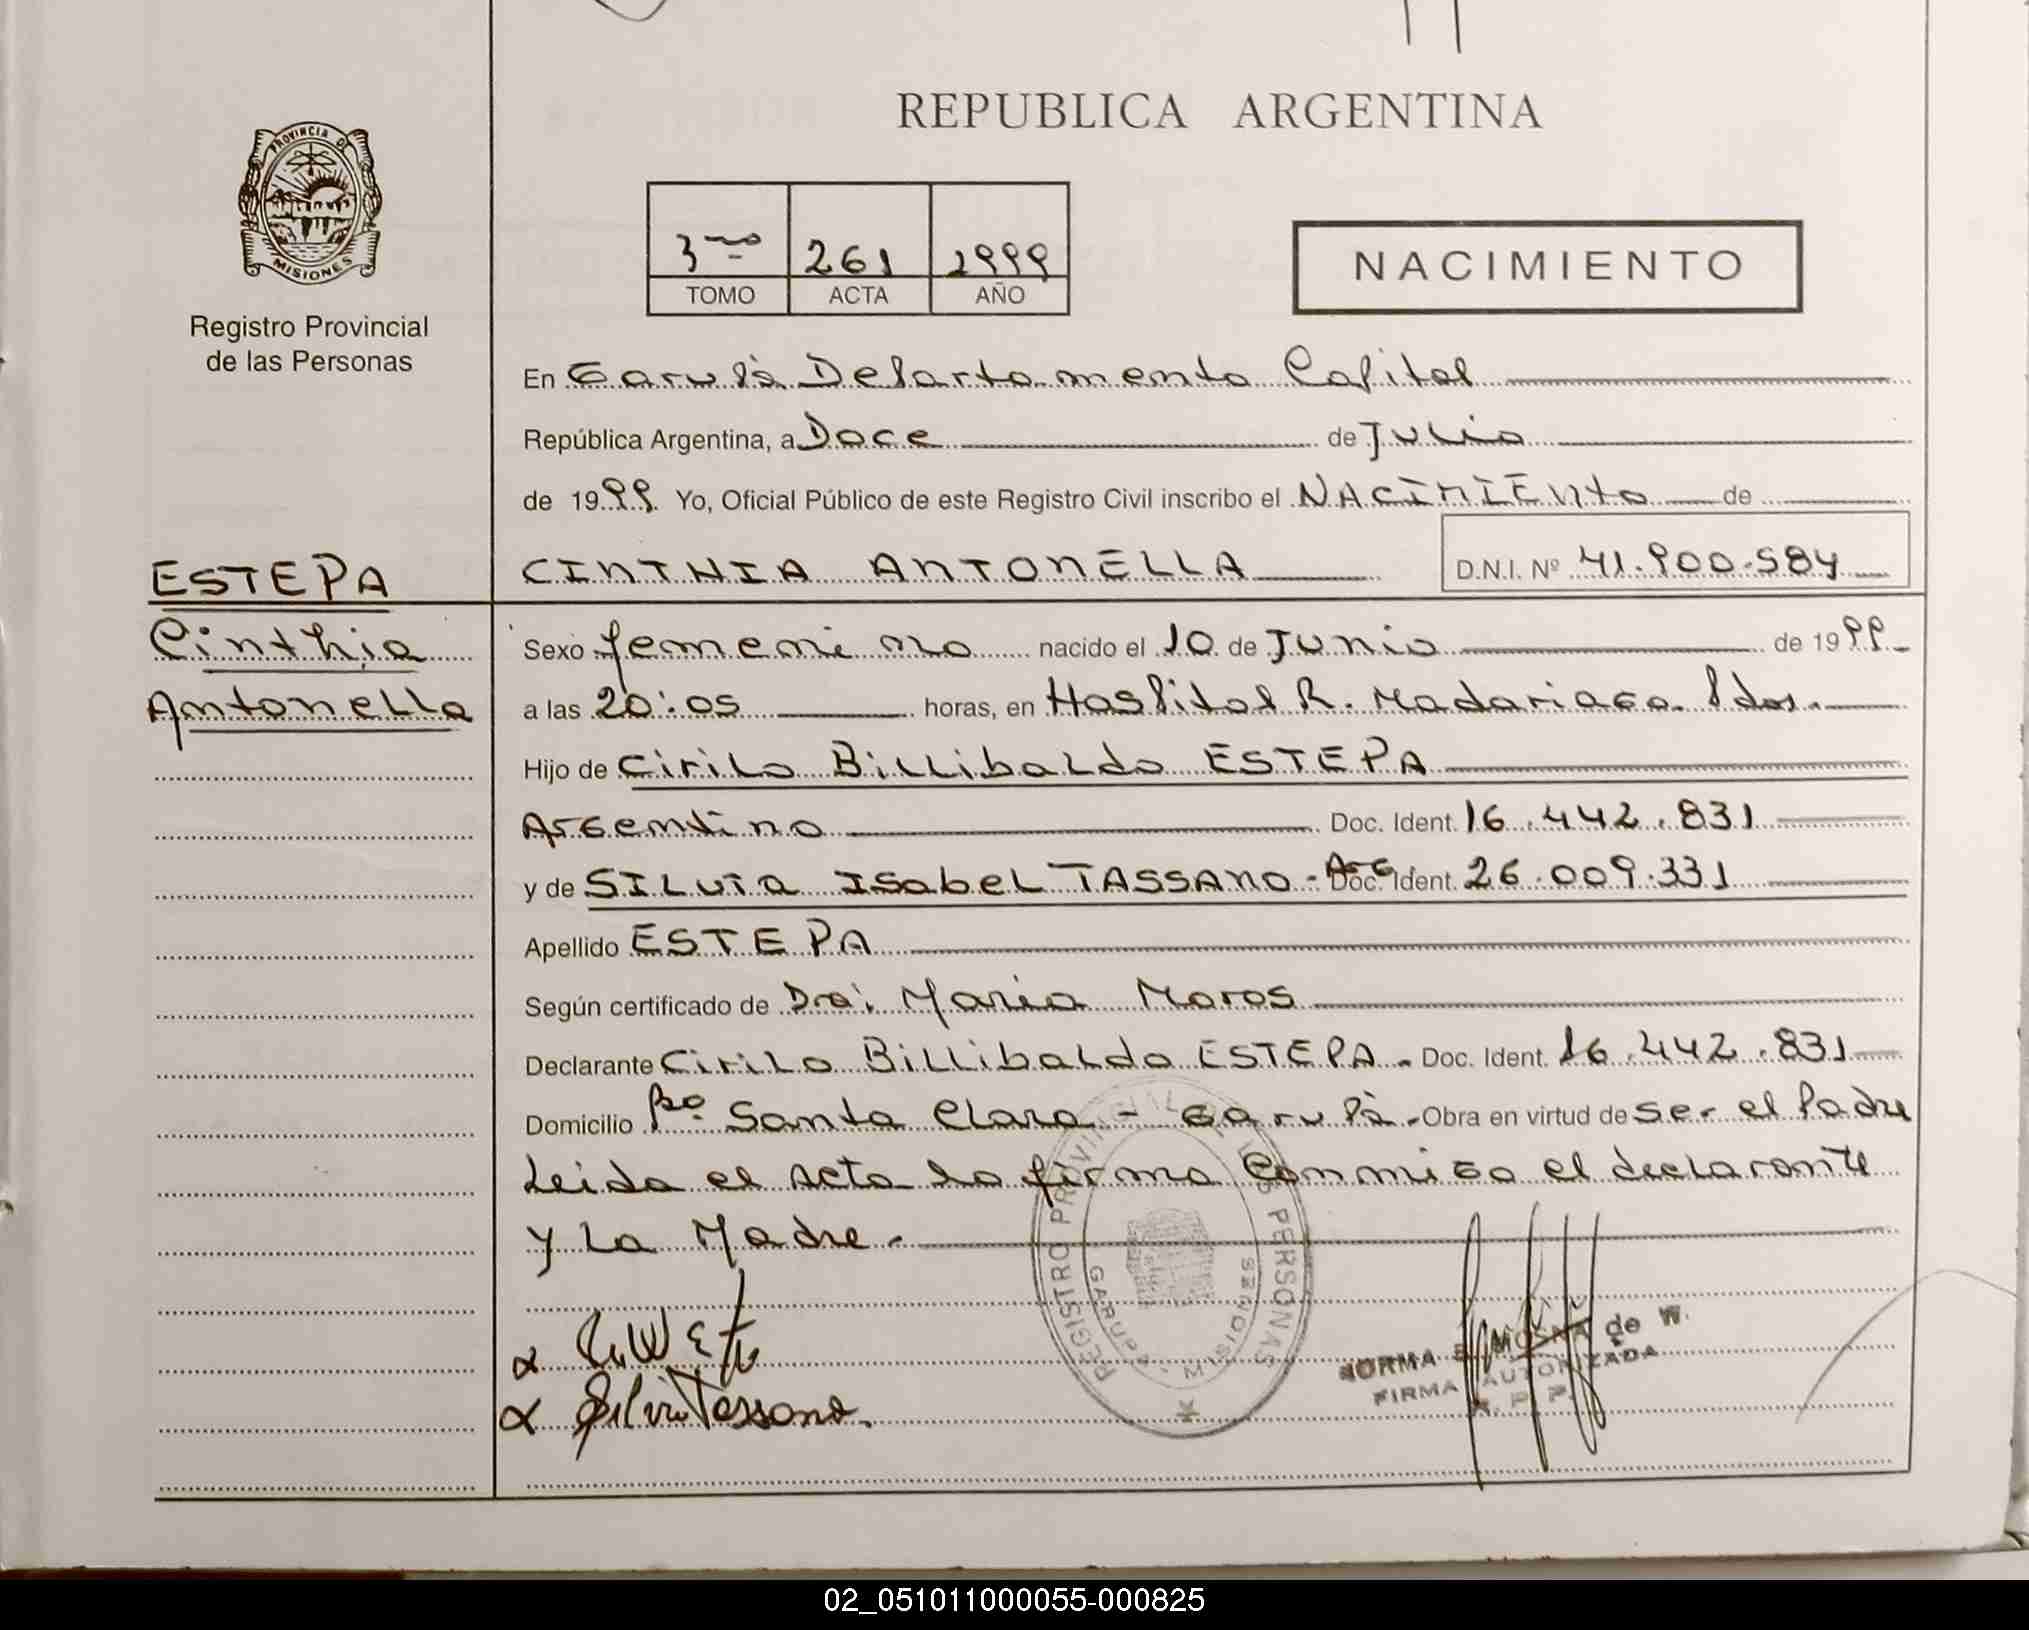 REPUBLICA ARGENTINA
PROVINCIA DE
MISIONES
Registro Provincial
de las Personas
3ro 261 1999
TOMO ACTA AÑO
NACIMIENTO
En Garupá Departamento Capital
República Argentina, a Doce de Julio
de 1999 Yo, Oficial Público de este Registro Civil inscribo el NACIMIENto de
ESTEPA
CINTHIA ANTONELLA D.N.I. Nº 41.900.584
Cinthia
Sexo femenino nacido el 10 de Junio de 1999
Antonella
a las 20:05 horas, en Hospital R. Madariaga Pdas.
Hijo de Cirilo Billibaldo ESTEPA
Argentino Doc. Ident. 16.442.831
y de SILVIA Isabel TASSANO - Arg Doc. Ident. 26.009.331
Apellido ESTEPA
Según certificado de Dra: Maria Moros
Declarante Cirilo Billibaldo ESTEPA. Doc. Ident. 16.442.831
Domicilio Bo Santa Clara - Garupá. Obra en virtud de ser el Padre
Leida el acta la firma conmigo el declarante
y La Madre.
REGISTRO PROVINCIAL DE LAS PERSONAS
GARUPA MISIONES
NORMA de W.
FIRMA AUTORIZADA
R. P. P.
Silvia Tassano.
02_051011000055-000825